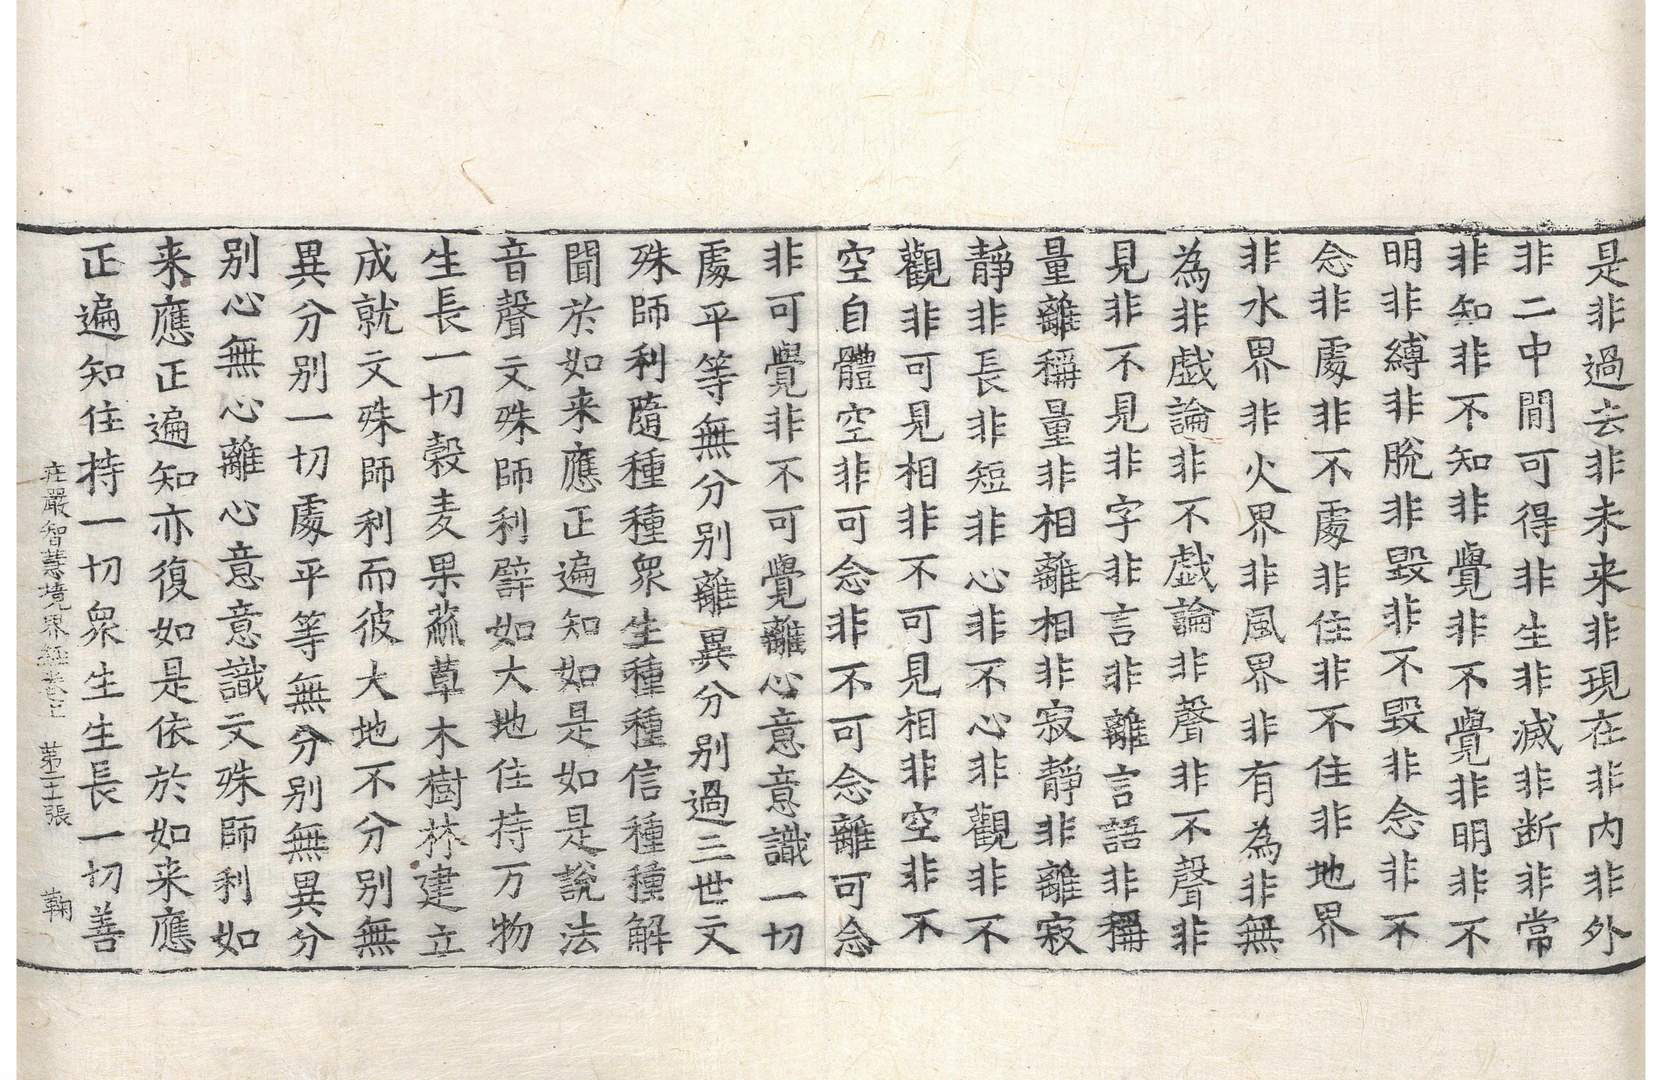 是非過去非未来非現在非内非外
非二中間可得非生非滅非断非常
非知非不知非覺非不覺非明非不
明非縛非脫非毀非不毀非念非不
念非處非不處非住非不住非地界
非水界非火界非風界非有為非無
為非戲論非不戲論非聲非不聲非
見非不見非字非言非離言語非稱
量離稱量非相離相非寂靜非離寂
靜非長非短非心非不心非觀非不
觀非可見相非不可見相非空非不
空自體空非可念非不可念離可念
非可覺非不可覺離心意意識一切
處平等無分别離異分别過三世文
殊師利隨種種衆生種種信種種解
聞於如来應正遍知如是如是說法
音聲文殊師利譬如大地住持万物
生長一切穀麦果蓏草木樹林建立
成就文殊師利而彼大地不分别無
異分别一切處平等無分别無異分
别心無心離心意意識文殊師利如
来應正遍知亦復如是依於如来應
正遍知住持一切衆生生長一切善
莊嚴智慧境界經卷上 第二十張 鞠